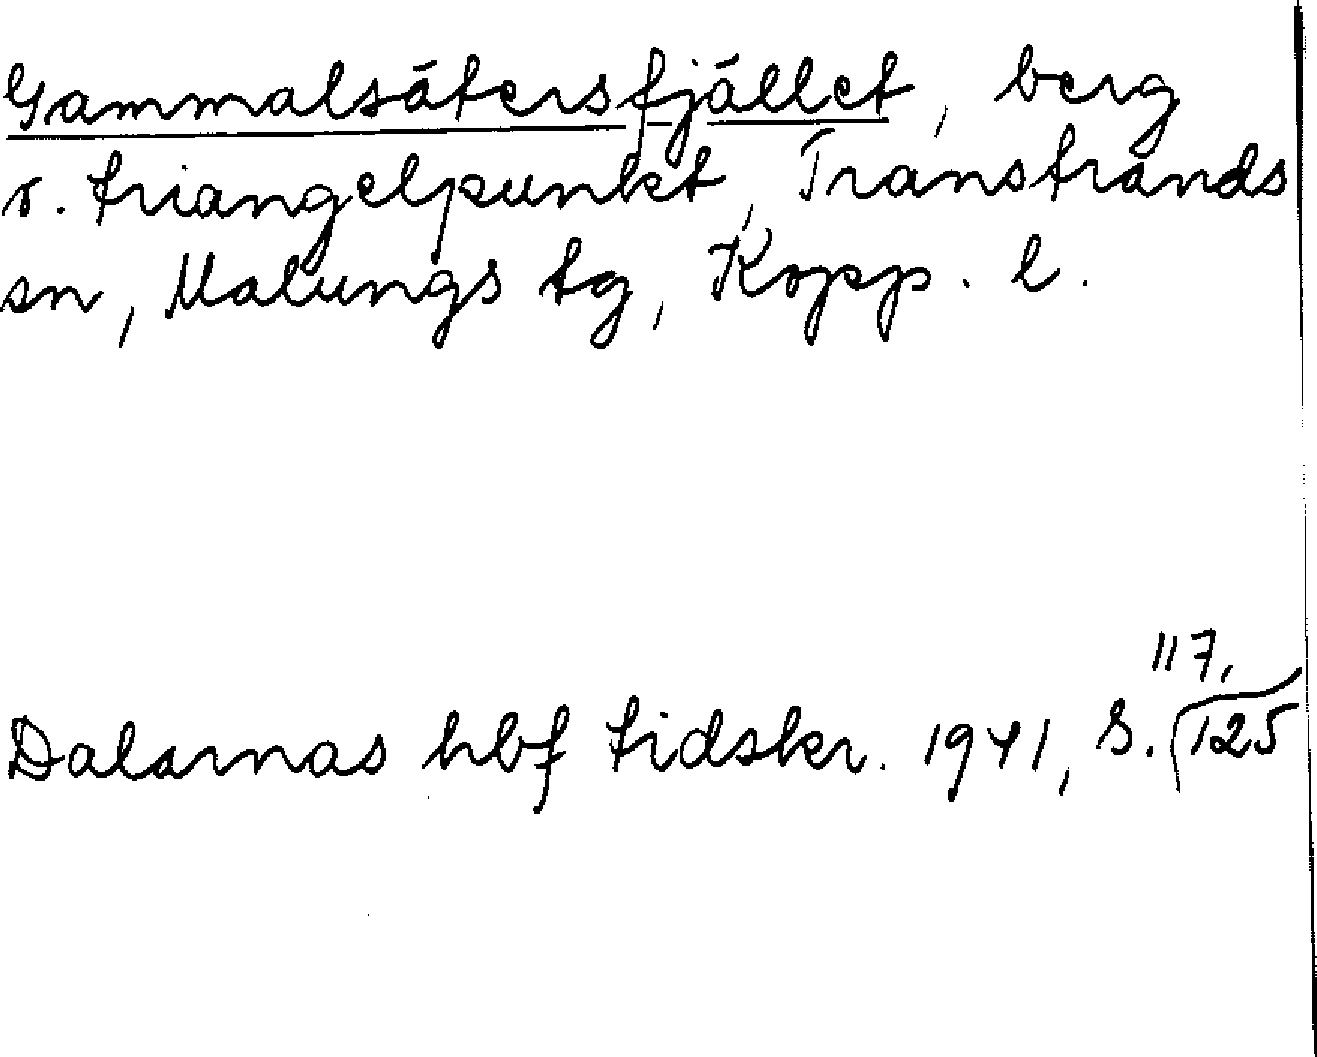 Gammalsätersfjället, berg
o. triangelpunkt, Transtrands
sn, Malungs tg, Kopp. l.
117,
Dalarnas hbf tidskr. 1941, S. 125